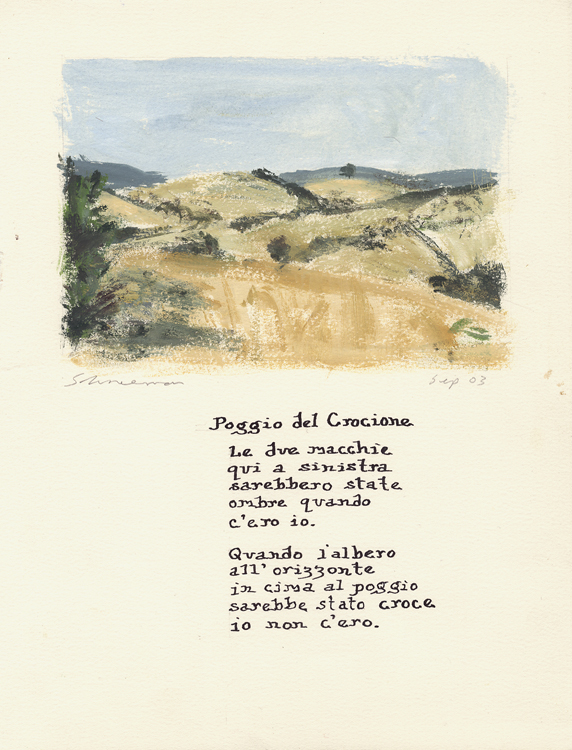 Schneeman
Sep 03
Poggio del Crocione
Le due macchie
qui a sinistra
sarebbero state
ombre quando
c'ero io.
Quando l'albero
all'orizzonte
in cima al poggio
sarebbe stato croce
io non c'ero.